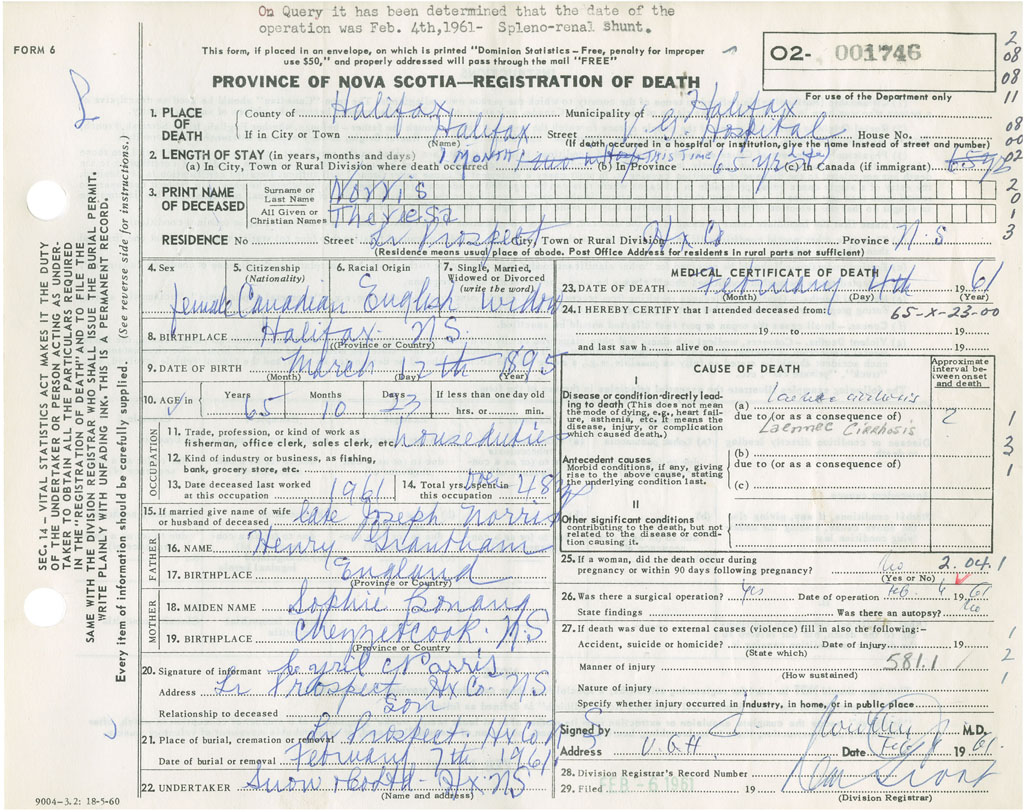 On Query it has been determined that the date of the
operation was Feb. 4th,1961- Spleno-renal Shunt.
FORM 6
This form, if placed in an envelope, on which is printed "Dominion Statistics – Free, penalty for improper
use $50," and properly addressed will pass through the mail "FREE"
O2- 001746
For use of the Department only
PROVINCE OF NOVA SCOTIA—REGISTRATION OF DEATH
1. PLACE OF DEATH
County of Halifax Municipality of Halifax
If in City or Town Halifax Street V. G. Hospital House No.
(Name) (If death occurred in a hospital or institution, give the name instead of street and number)
2. LENGTH OF STAY (in years, months and days)
(a) In City, Town or Rural Division where death occurred 1 MONTH THIS TIME (b) In Province 65 yrs (Life) (c) In Canada (if immigrant)
3. PRINT NAME OF DECEASED
Surname or Last Name Norris
All Given or Christian Names Theresa
RESIDENCE No Street Lr Prospect City, Town or Rural Division Hx Co Province N.S
(Residence means usual place of abode. Post Office Address for residents in rural parts not sufficient)
4. Sex female
5. Citizenship (Nationality) Canadian
6. Racial Origin English
7. Single, Married, Widowed or Divorced (write the word) Widow
8. BIRTHPLACE Halifax N.S.
(Province or Country)
9. DATE OF BIRTH March 12th 1895
(Month) (Day) (Year)
10. AGE in Years 65 Months 10 Days 23 If less than one day old hrs. or min.
OCCUPATION
11. Trade, profession, or kind of work as fisherman, office clerk, sales clerk, etc. houseduties
12. Kind of industry or business, as fishing, bank, grocery store, etc.
13. Date deceased last worked at this occupation 1961
14. Total yrs. spent in this occupation 48
15. If married give name of wife or husband of deceased late Joseph Norris
FATHER
16. NAME Henry Grantham
17. BIRTHPLACE England
(Province or Country)
MOTHER
18. MAIDEN NAME Sophie Bonang
19. BIRTHPLACE Chezzetcook. N.S
(Province or Country)
20. Signature of informant Cyril Norris
Address Lr Prospect Hx Co. N.S
Relationship to deceased Son
21. Place of burial, cremation or removal Lr Prospect. Hx Co. N S
Date of burial or removal February 7th 1961
22. UNDERTAKER Snow Hx. N.S
(Name and address)
9004–3.2: 18-5-60
MEDICAL CERTIFICATE OF DEATH
23. DATE OF DEATH February 4th 1961
(Month) (Day) (Year)
24. I HEREBY CERTIFY that I attended deceased from:
65-X-23-00
19 to 19
and last saw h alive on 19
CAUSE OF DEATH
Approximate interval between onset and death
I
Disease or condition directly leading to death (This does not mean the mode of dying, e.g., heart failure, asthenia, etc. It means the disease, injury, or complication which caused death.)
(a) Laennec cirrhosis
due to (or as a consequence of)
Laennec Cirrhosis
2
Antecedent causes
Morbid conditions, if any, giving rise to the above cause, stating the underlying condition last.
(b)
due to (or as a consequence of)
(c)
II
Other significant conditions
contributing to the death, but not related to the disease or condition causing it.
25. If a woman, did the death occur during pregnancy or within 90 days following pregnancy? No
2.04.1
(Yes or No)
26. Was there a surgical operation? Yes Date of operation Feb. 4 1961
State findings Was there an autopsy? No
27. If death was due to external causes (violence) fill in also the following:–
Accident, suicide or homicide? Date of Injury 19
(State which)
Manner of injury 581.1
(How sustained)
Nature of injury
Specify whether injury occurred in industry, in home, or in public place
Signed by M.D.
Address V.G.H Date Feb 1961
28. Division Registrar's Record Number
29. Filed FEB -6 1961 19
(Division Registrar)
SEC. 14 – VITAL STATISTICS ACT MAKES IT THE DUTY
OF THE UNDERTAKER OR PERSON ACTING AS UNDER-
TAKER TO OBTAIN ALL THE PARTICULARS REQUIRED
IN THE "REGISTRATION OF DEATH" AND TO FILE THE
SAME WITH THE DIVISION REGISTRAR WHO SHALL ISSUE THE BURIAL PERMIT.
WRITE PLAINLY WITH UNFADING INK. THIS IS A PERMANENT RECORD.
Every item of information should be carefully supplied. (See reverse side for instructions.)
2
08
08
11
08
00
02
2
0
1
3
1
3
1
1
1
2
1